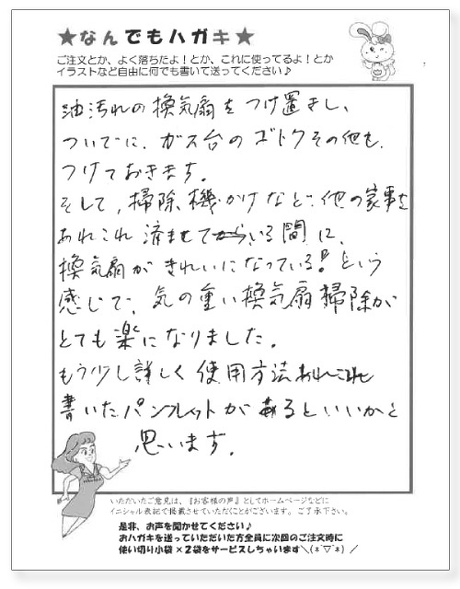 ★なんでもハガキ★
ご注文とか、よく落ちたよ！とか、これに使ってるよ！とか
イラストなど自由に何でも書いて送ってください♪
油汚れの換気扇をつけ置きし、
ついでに、ガス台のゴトクその他も、
つけておきます。
そして、掃除機かけなど、他の家事を
あれこれ済ませている間に、
換気扇がきれいになっている!!という
感じで、気の重い換気扇掃除が
とても楽になりました。
もう少し詳しく使用方法あれこれ
書いたパンフレットがあるといいかと
思います。
いただいたご意見は、『お客様の声』としてホームページなどに
イニシャル表記で掲載させていただくことがございます。ご了承下さい。
是非、お声を聞かせてください♪
おハガキを送っていただいた方全員に次回のご注文時に
使い切り小袋×2袋をサービスしちゃいます＼(*ˊ▽ˋ*)／